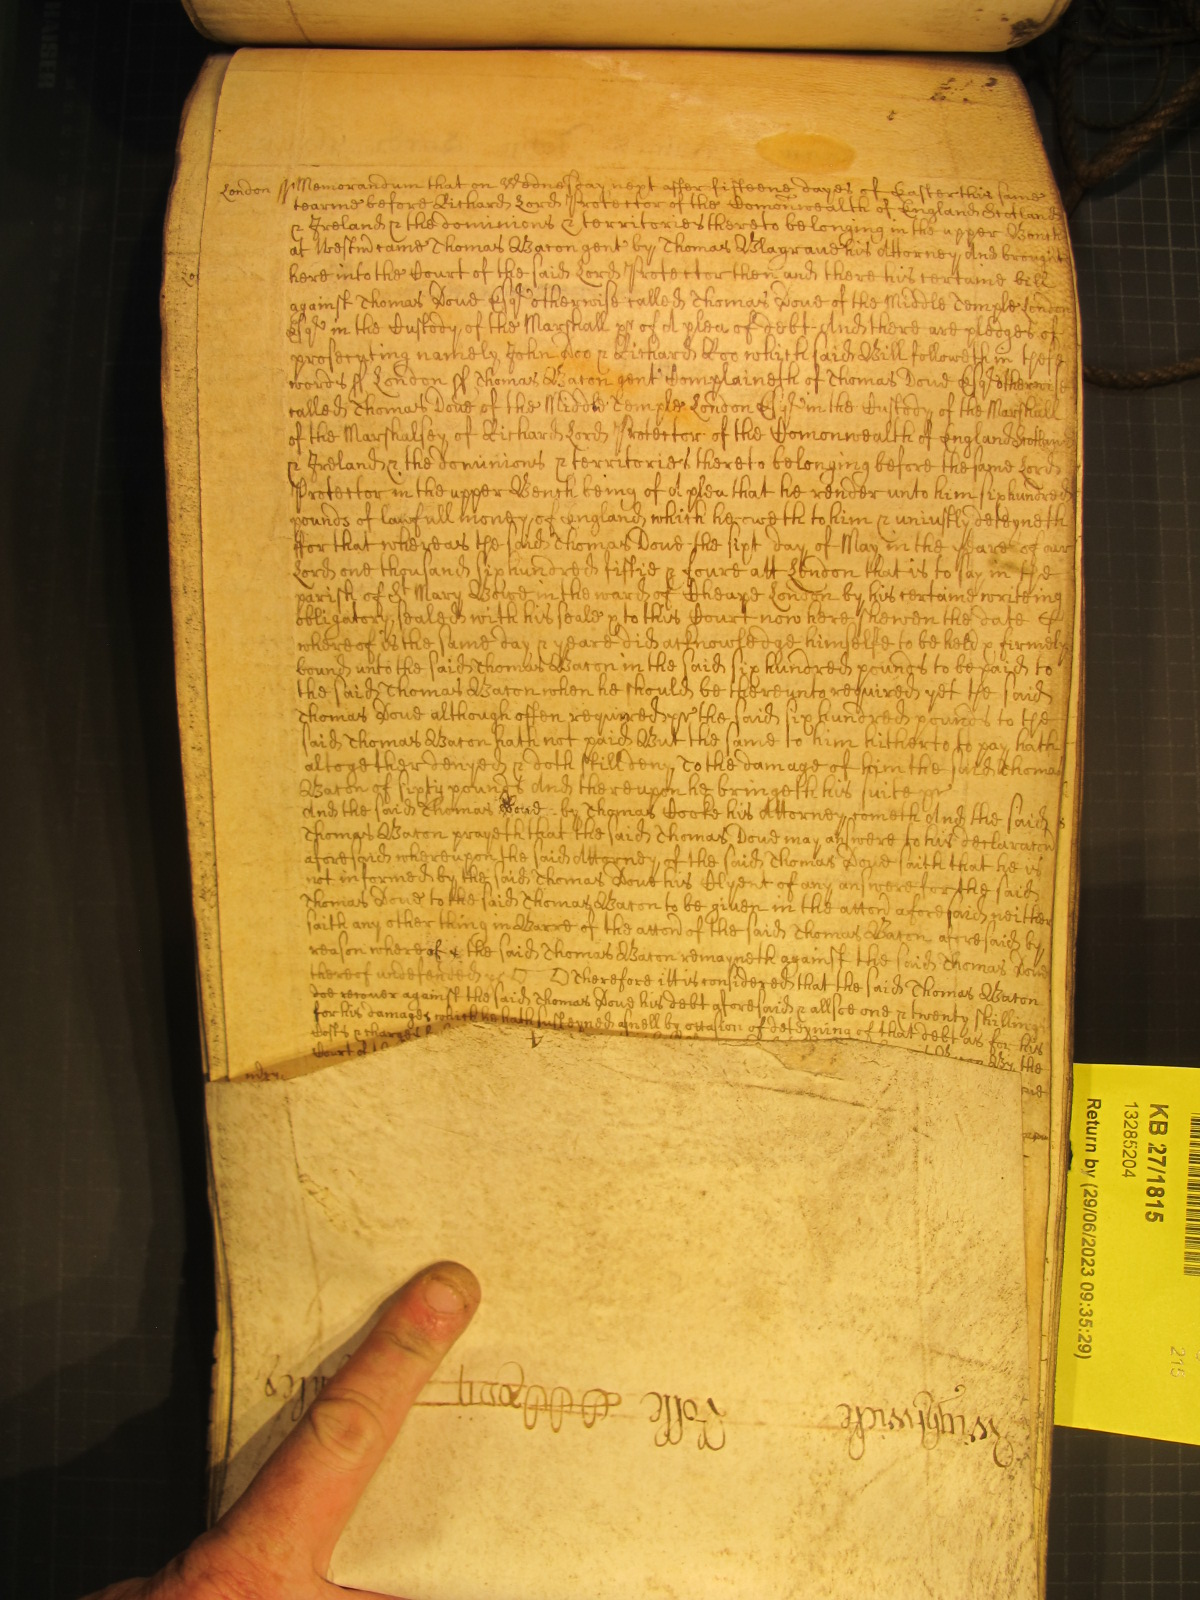 London ss Memorandum that on Wednesday next after fifteene dayes of Easter this same
tearme before Richard Lord Protector of the Comonwealth of England Scotland
& Ireland & the dominions & territories thereto belonging in the upper Bench
at Westm came Thomas Bacon gent by Thomas Blagrave his Attorney And brought
here into the Court of the said Lord Protector then and there his certaine bill
against Thomas Doue Esqr otherwise called Thomas Doue of the Middle Temple London
Esqr in the Custody of the Marshall &c of a plea of debt And there are pledges of
prosecuting namely John Doo & Richard Roo which said Bill followeth in these
words ss London ss Thomas Bacon gent Complaineth of Thomas Doue Esqr otherwise
called Thomas Doue of the Middle Temple London Esqr in the Custody of the Marshall
of the Marshalsey of Richard Lord Protector of the Comonwealth of England Scotland
& Ireland & the dominions & territories thereto belonging before the same Lord
Protector in the upper Bench being of a plea that he render unto him six hundred
pounds of lawfull money of England which he oweth to him & uniustly deteyneth
ffor that whereas the said Thomas Doue the sixt day of May in the yeare of our
Lord one thousand six hundred fiftie & foure att London that is to say in the
parish of St Mary Bowe in the ward of Cheape London by his certaine writeing
obligatory sealed with his seale & to this Court now here shewen the date
whereof is the same day & yeare did acknowledge himselfe to be held & firmely
bound unto the said Thomas Bacon in the said six hundred pounds to be paid to
the said Thomas Bacon when he should be thereunto required yet the said
Thomas Doue although often required &c the said six hundred pounds to the
said Thomas Bacon hath not paid But the same to him hitherto to pay hath
altogether denyed & doth still deny To the damage of him the said Thomas
Bacon of sixty pounds And thereupon he bringeth his suite &c
And the said Thomas Doue by Thomas Cooke his Attorney cometh And the said
Thomas Bacon prayeth that the said Thomas Doue may answere to his declaracon
aforesaid whereupon the said Attorney of the said Thomas Doue saith that he is
not informed by the said Thomas Doue his Clyent of any answere for the said
Thomas Doue to the said Thomas Bacon to be given in the accon aforesaid neither
saith any other thing in Barre of the accon of the said Thomas Bacon aforesaid by
reason whereof the said Thomas Bacon remayneth against the said Thomas Doue
thereof undefended &c Therefore itt is considered that the said Thomas Bacon
doe recover against the said Thomas Doue his debt aforesaid & allsoe one & twenty shillings
for his damages which he hath susteyned aswell by occasion of deteyning of that debt as for his
Costs & charges
Court
By the
Wightwicke
Rolle
KB 27/1815
13285204
Return by (29/06/2023 09:35:29)
215